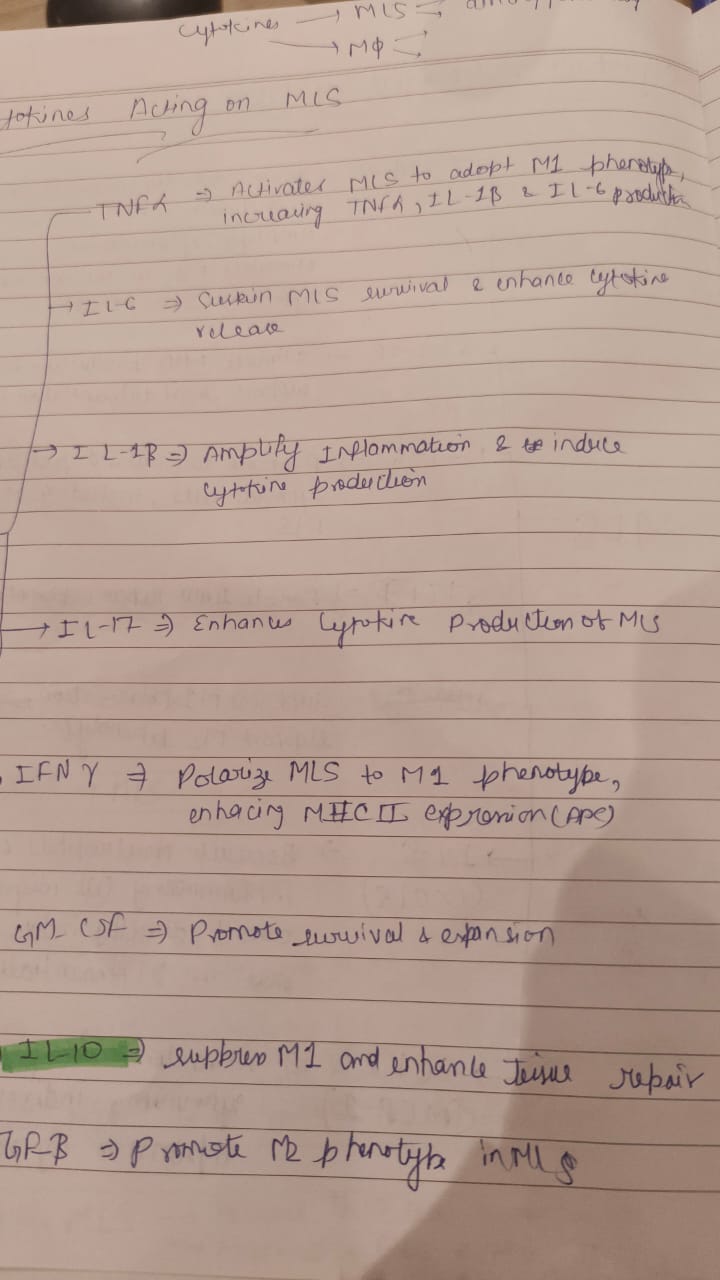 Cytokines → MLS ⇒
→ MΦ
tokines Acting on MLS
TNFα ⇒ Activates MLS to adopt M1 phenotype,
increasing TNFα, IL-1β & IL-6 production
→ IL-6 ⇒ Sustain MLS survival & enhance cytokine
release
→ IL-1β ⇒ Amplify Inflammation & induce
cytokine production
→ IL-17 ⇒ Enhances Cytokine Production of MLS
IFN γ ⇒ Polarize MLS to M1 phenotype,
enhacing MHC II expression (APC)
GM-CSF ⇒ Promote survival & expansion
IL-10 ⇒ suppress M1 and enhance Tissue repair
GF-β ⇒ Promote M2 phenotype in MLS